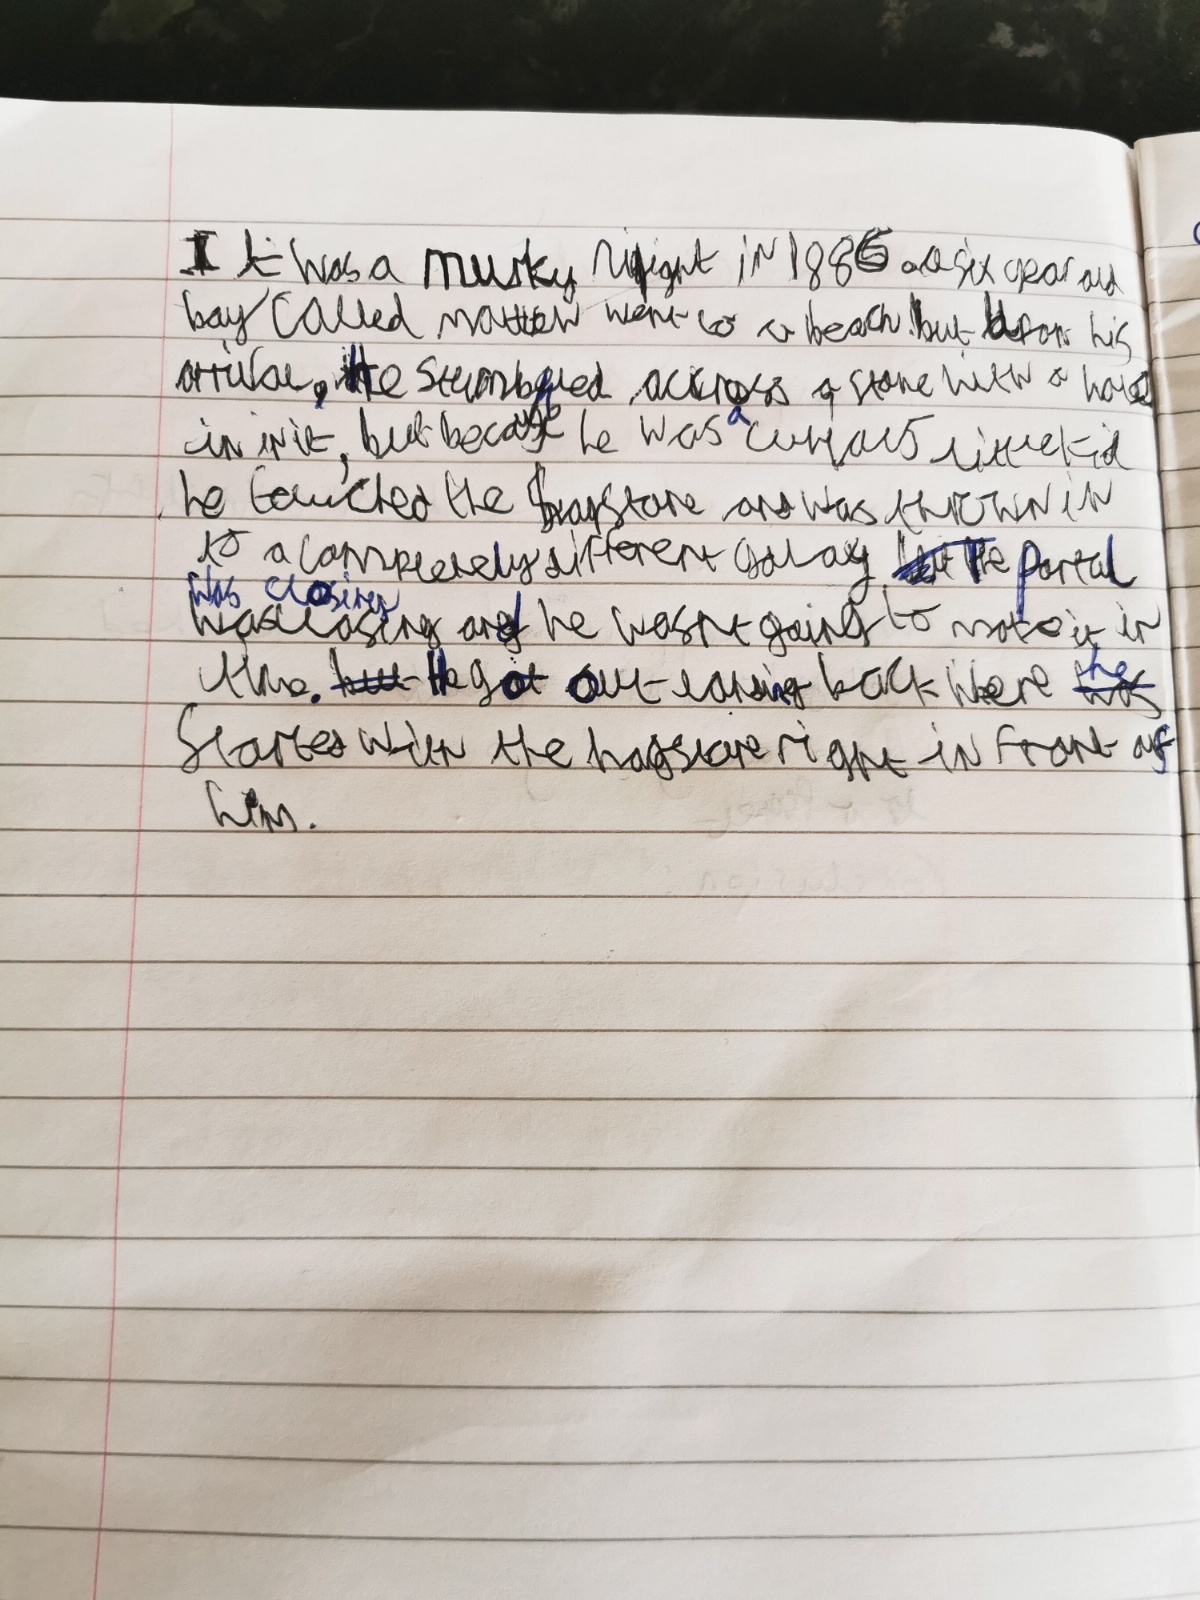 It was a murky night in 1886 a six year old
boy called matthew went to a beach but upon his
arrival, He stumbled across a stone with a hole
in it, but because he was a curious little kid
he touched the hagstone and was thrown in
to a completely different galaxy The portal
was closing
was closing and he wasnt going to make it in
time. but He got out landing back where he
started with the hagstone right in front of
him.